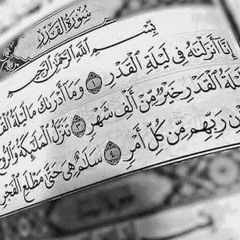 سُورَةُ الْقَدْرِ
بِسْمِ اللَّهِ الرَّحْمَٰنِ الرَّحِيمِ
إِنَّا أَنْزَلْنَاهُ فِي لَيْلَةِ الْقَدْرِ ۝١ وَمَا أَدْرَاكَ مَا لَيْلَةُ
لَيْلَةُ الْقَدْرِ خَيْرٌ مِنْ أَلْفِ شَهْرٍ ۝٣ تَنَزَّلُ الْمَلَائِكَةُ
رَبِّهِمْ مِنْ كُلِّ أَمْرٍ ۝٤ سَلَامٌ هِيَ حَتَّىٰ مَطْلَعِ الْفَجْرِ